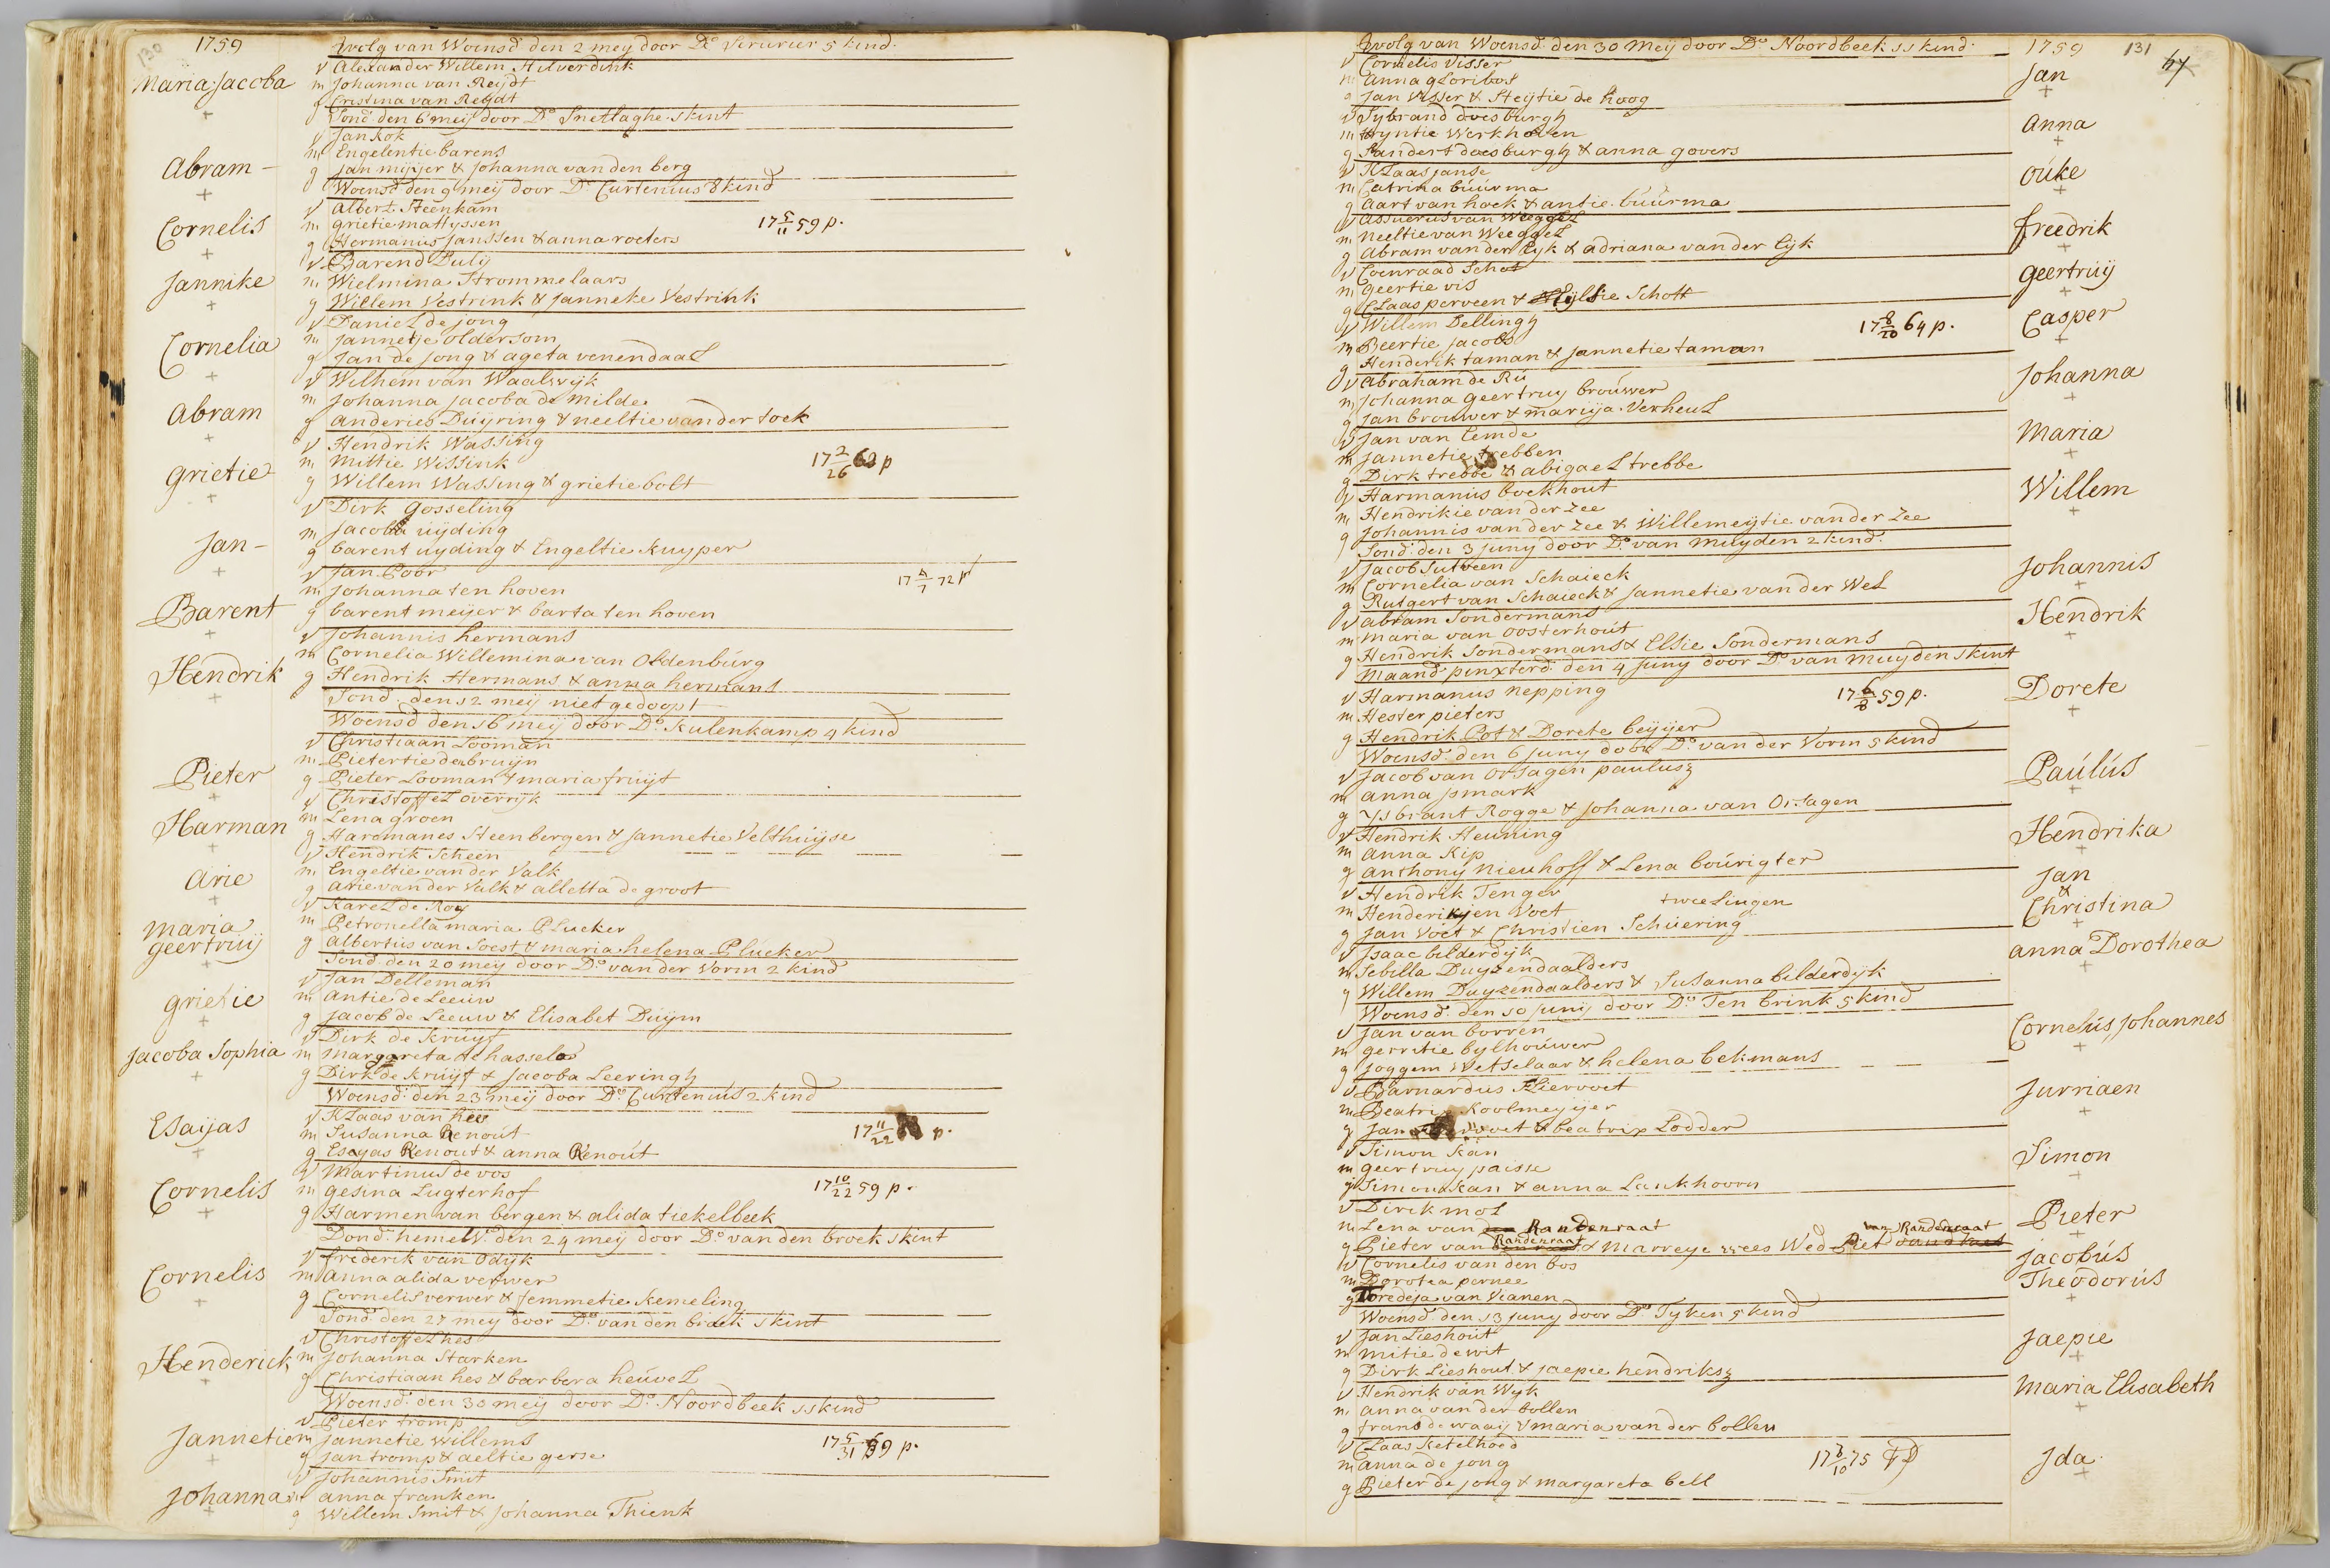 130
1759
Maria Jacoba
vvolg van Woensd. den 2 mey door Do Serurier 5 kind.
v Alexander Willem Hilverdink
m Johanna van Reijdt
g Cristina van Reydt
Sond. den 6 meij door Do Snetlaghe 1 kint
Abram
v Jan kok
m Engelentie barens
g Jan mijer & Johanna van den berg
Woensd. den 9 meij door Do Curtenius 8 kind
Cornelis
v Albert Steenkam
m grietie mattyssen 17 5/11 59 p.
g Hermanus Janssen & anna roeters
Jannike
v Barend Pulij
m Wielmina Strommelaars
g Willem Vestrink & Janneke Vestrink
Cornelia
v Daniel de jong
m Jannetje oldersom
g Jan de jong & ageta venendaal
Abram
v Wilhem van Waalwijk
m Johanna jacoba de milde
g anderies Duijring & neeltie van der toek
grietie
v Hendrik Wassing
m mittie Wissink 17 2/26 p
g Willem Wassing & grietie bolt
Jan
v Dirk gosseling
m Jacoba uijding
g barent uyding & Engeltie Kuyper
Barent
v Jan Poor
m Johanna ten hoven 17 4/7 72 p
g barent meijer & barta ten hoven
Hendrik
v Johannis hermans
m Cornelia Willemina van Oldenburg
g Hendrik Hermans & anna hermans
Sond. den 12 meij niet gedoopt
Woensd. den 16 meij door Do Kulenkamp 4 kind
Pieter
v Christiaan Looman
m Pietertie de bruijn
g Pieter Looman & maria fruijt
Harman
v Christoffel overrijk
m Lena groen
g Harmanes Steenbergen & Jannetie Velthuijse
Arie
v Hendrik Scheen
m Engeltie van der Valk
g arie van der Valk & alletta de groot
maria geertruij
v Karel de Roy
m Petronella maria Plucker
g albertus van Soest & maria helena Plucker
Sond. den 20 mey door Do van der Vorm 2 kind
grietie
v Jan Delleman
m antie de Leeuw
g jacob de Leeuw & Elisabet Duijm
Jacoba Sophia
v Dirk de kruijf
m margareta hassela
g Dirk de kruijf & jacoba Leeringh
Woensd. den 23 meij door Do Curtenius 2 kind
Esaijas
v Klaas van Ree
m Susanna Renout 17 11/22 p.
g Esayas Renout & anna Renout
Cornelis
v martinus de vos
m gesina Lugterhof 17 10/22 59 p.
g Harmen van bergen & alida tiekelbeek
Dond. hemelv. den 24 mey door Do van den broek 1 kint
Cornelis
v frederik van Odijk
m anna alida verwer
g Cornelis verwer & femmetie kemeling
Sond. den 27 mey door Do van den broek 1 kint
Henderick
v Christoffel hes
m Johanna Starken
g Christiaan hes & barbera heuvel
Woensd. den 30 mey door Do Noordbeek 11 kind
Jannetie
v Pieter tromp
m Jannetie Willems 17 5/31 59 p.
g Jan tromp & aeltie gerse
Johanna
v Johannis Smit
m anna franken
g Willem Smit & Johanna Thienk
vvolg van Woensd. den 30 Meij door Do Noordbeek 11 kind.
1759
131
Jan
v Cornelis Visser
m anna gloribos
g Jan Visser & Steijtie de hoog
Anna
v Sybrand doesburgh
m Wyntie Werkhoven
g Sandert doesburgh & anna govers
ouke
v Klaas janse
m Catrina buurma
g Aart van hoek & antie buurma
freedrik
v Assuerus van Weeggel
m Neeltie van Weeggel
g Abram van der Eyk & adriana van der Eijk
geertruij
v Coenraad Schot
m geertie vis
g Claas perveen & Schott
Casper
v Willem Dellingh
m Beertie jacobs 17 8/20 64 p.
g Henderik taman & jannetie taman
Johanna
v abraham de Ru
m Johanna geertruy brouwer
g Jan brouwer & marija Verheul
Maria
v Jan van Eemde
m Jannetie trebben
g Dirk trebbe & abigael trebbe
Willem
v Harmanus boekhout
m Hendrikie van der Zee
g Johannis van der Zee & Willemeijtie van der Zee
Sond. den 3 juny door Do van Muyden 2 kind.
Johannis
v Jacob Sutveen
m Cornelia van Schaieck
g Rutgert van Schaieck & Jannetie van der Wel
Hendrik
v abram Sondermans
m maria van oosterhout
g Hendrik Sondermans & Elsie Sondermans
Maand. pinxterd. den 4 juny door Do van Muyden 1 kint
Dorete
v Harmanus Nepping 17 6/8 59 p.
m Hester pieters
g Hendrik Pot & Dorete beyijer
Woensd. den 6 juny door Do van der Vorm 5 kind
Paulus
v Jacob van Orsagen paulusz
m anna jsmark
g Ysbrant Rogge & johanna van Orsagen
Hendrika
v Hendrik Heuning
m anna Kip
g anthony nieuhoff & Lena bourigter
Jan
&
Christina
v Hendrik Tenger
tweelingen
m Henderikjen Voet
g Jan Voet & Christien Schuering
anna Dorothea
v Isaac bilderdijk
m Sebilla Duyzendaalders
g Willem Duyzendaalders & Susanna bilderdijk
Woensd. den 10 junij door Do Ten brink 5 kind
Cornelus Johannes
v Jan van borren
m gerretie bylhouwer
g Joggem Wetselaar & helena bekmans
Jurriaen
v Barnardus Fliervoet
m Beatrix Koolmeyijer
g Jan & beatrix Lodder
Simon
v Simon kan
m geertruy paisse
g Simon kan & anna Lankhoorn
Pieter
v Dirck mol
m Lena van Randenraat
van Randenraat
g Pieter van Randenraat & Marreye wees Wed Piet
Jacobus
Theodorus
v Cornelis van den bos
m Dorotea pernee
g Toredeja van Vianen
Woensd. den 13 juny door Do Tyken 5 kind
Jaepie
v Jan Lieshout
m mitie de wit
g Dirk Lieshout & jaepie hendriksz
Maria Elisabeth
v Hendrik van Wyk
m anna van der bollen
g frans de waaij & maria van der bollen
Jda
v Claas ketelhoed
m anna de jong 17 8/10 75
g Pieter de jong & margareta bell